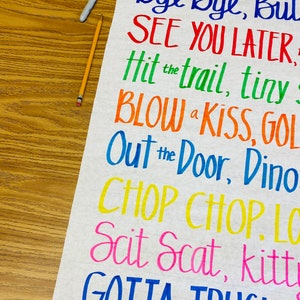 Bye Bye, But
SEE YOU LATER,
Hit the trail, tiny
BLOW a KISS, GOL
Out the Door, Dino
CHOP CHOP. LO
Scit Scat, Kitty
GOTTA